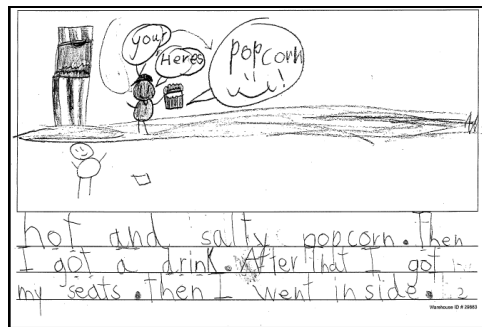 your
Heres
popcorn
!
hot and salty popcorn. Then
I got a drink. After that I got
my seats. Then I went inside.
Warehouse ID # 29883